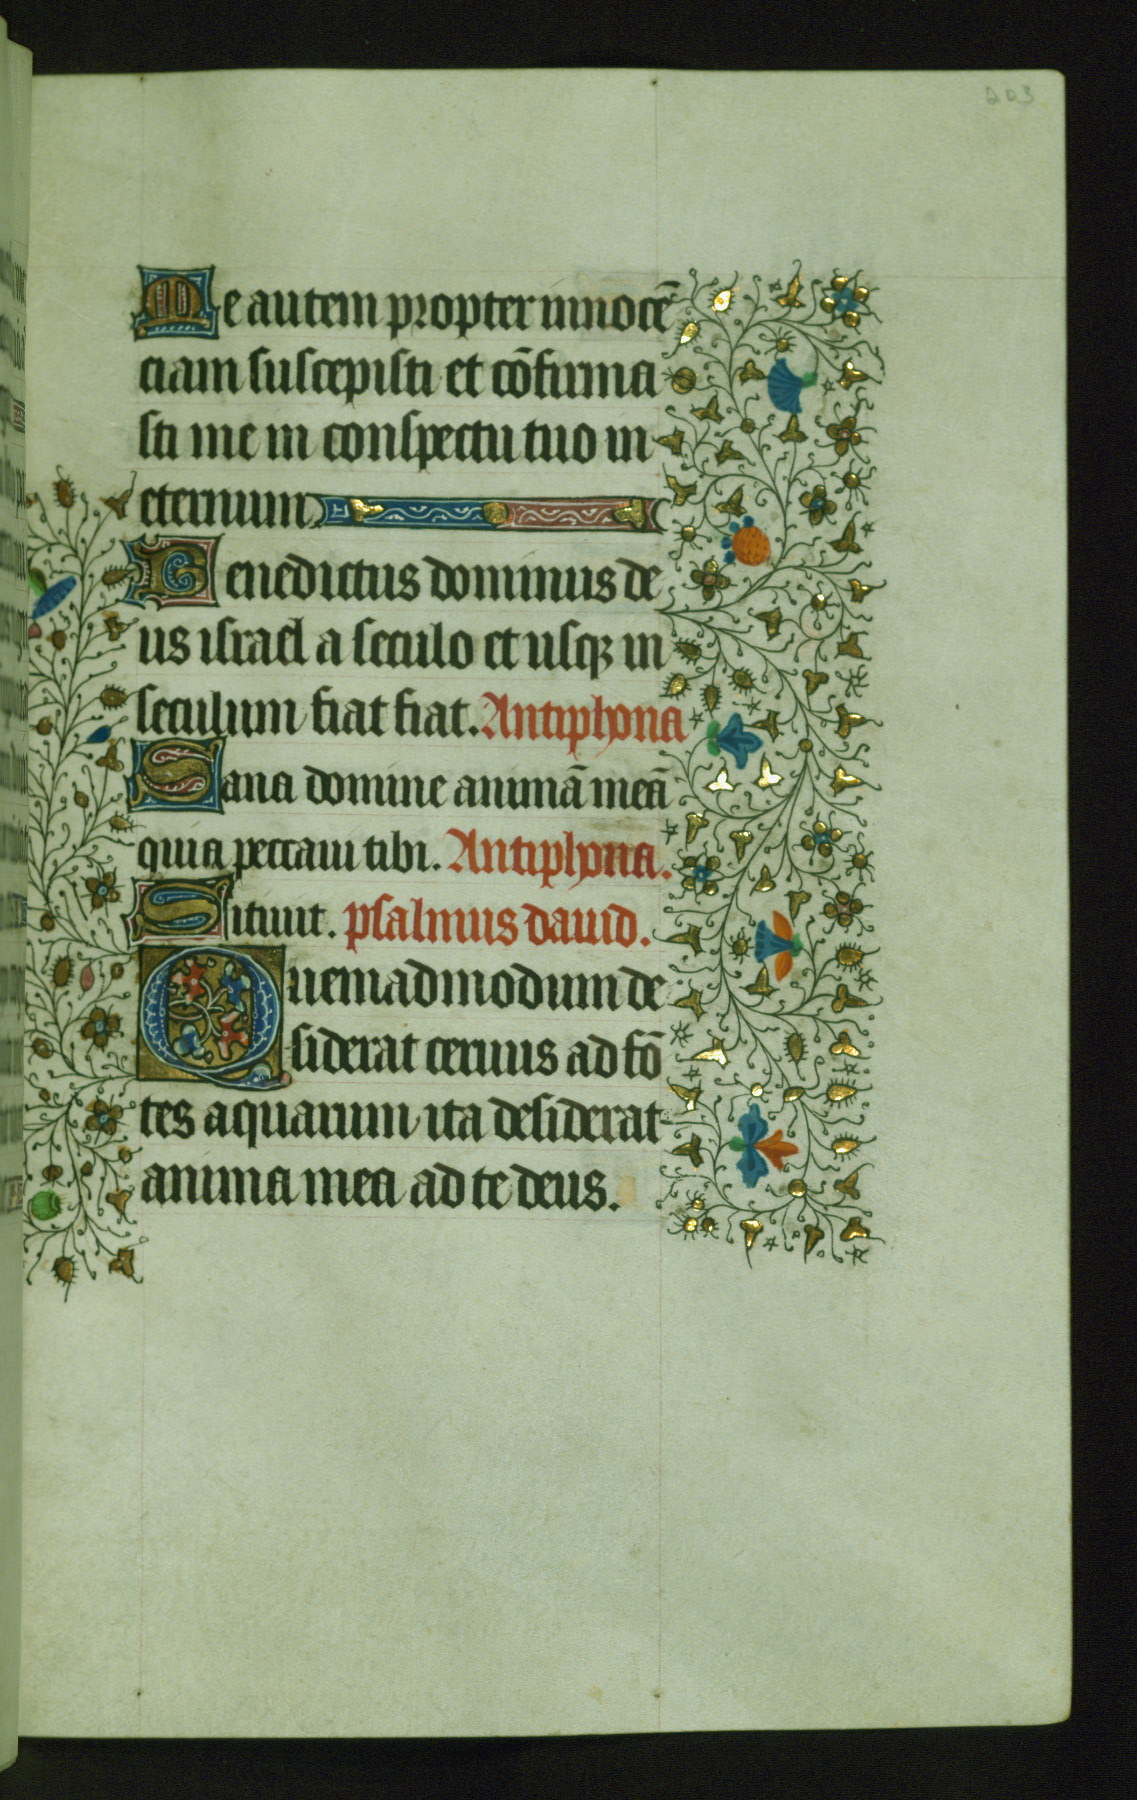 203
Me autem propter innocē
ciam suscepisti et cōfirma
sti me in conspectu tuo in
eternum
Benedictus dominus de
us israel a seculo et usqꝫ in
seculum fiat fiat. Antiphona
Sana domine animā meā
quia peccaui tibi. Antiphona.
Sitiuit. psalmus dauid.
Quemadmodum de
siderat ceruus ad fō
tes aquarum ita desiderat
anima mea ad te deus.